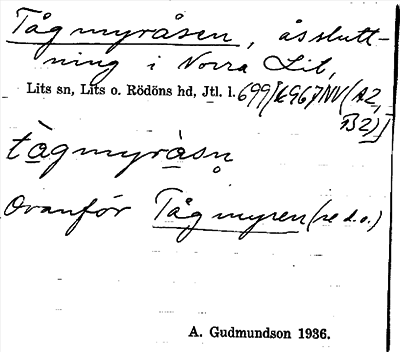 Tågmyråsen, åsslutt-
ning i Norra Lit,
Lits sn, Lits o. Rödöns hd, Jtl. l. 699/K967NV(A2,
B2)
tàgmyràsn̥
Ovanför Tågmyren (se d.o.)
A. Gudmundson 1936.